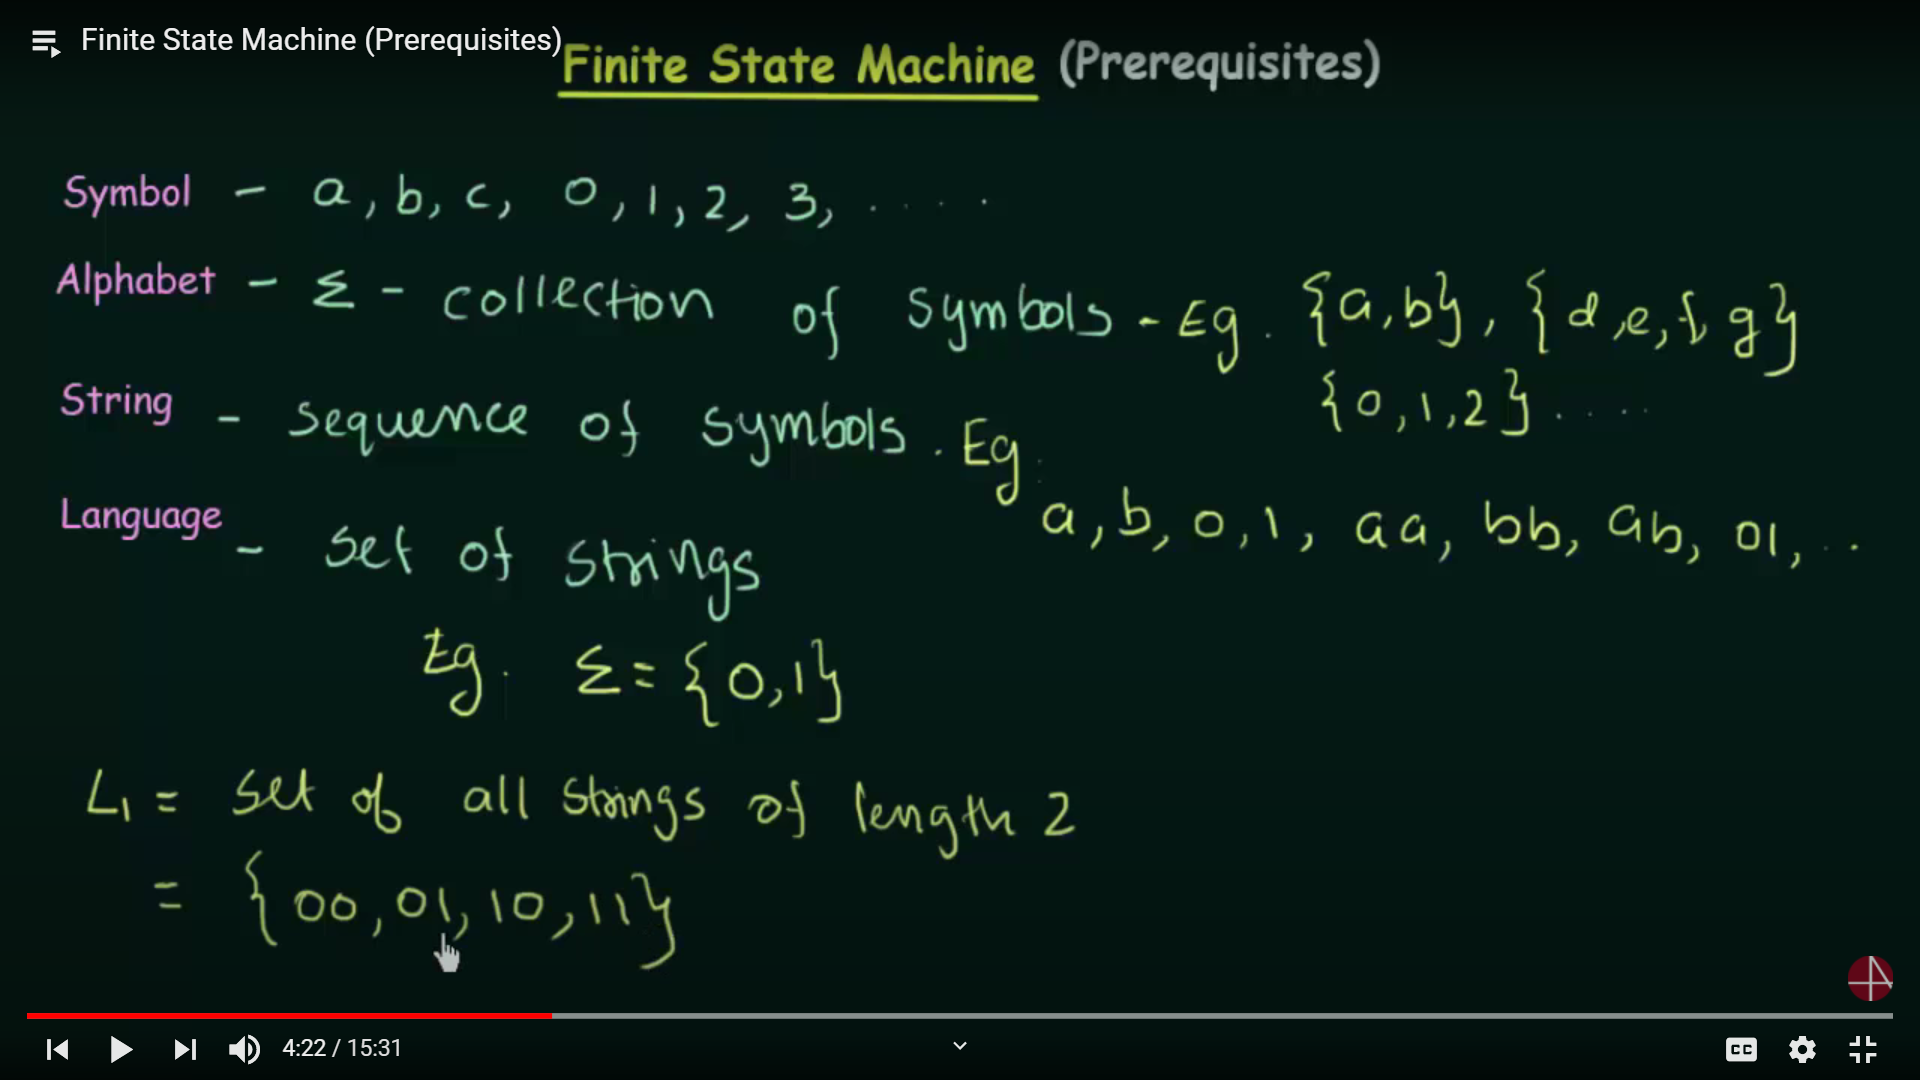 Finite State Machine (Prerequisites)
Finite State Machine (Prerequisites)
Symbol - a, b, c, 0, 1, 2, 3, .....
Alphabet - Σ - collection of symbols - Eg. {a, b}, {d, e, f, g}
{0, 1, 2} .....
String - sequence of symbols. Eg:
a, b, 0, 1, aa, bb, ab, 01, ..
Language - set of strings
Eg. Σ = {0, 1}
L1 = set of all strings of length 2
= {00, 01, 10, 11}
4:22 / 15:31
CC